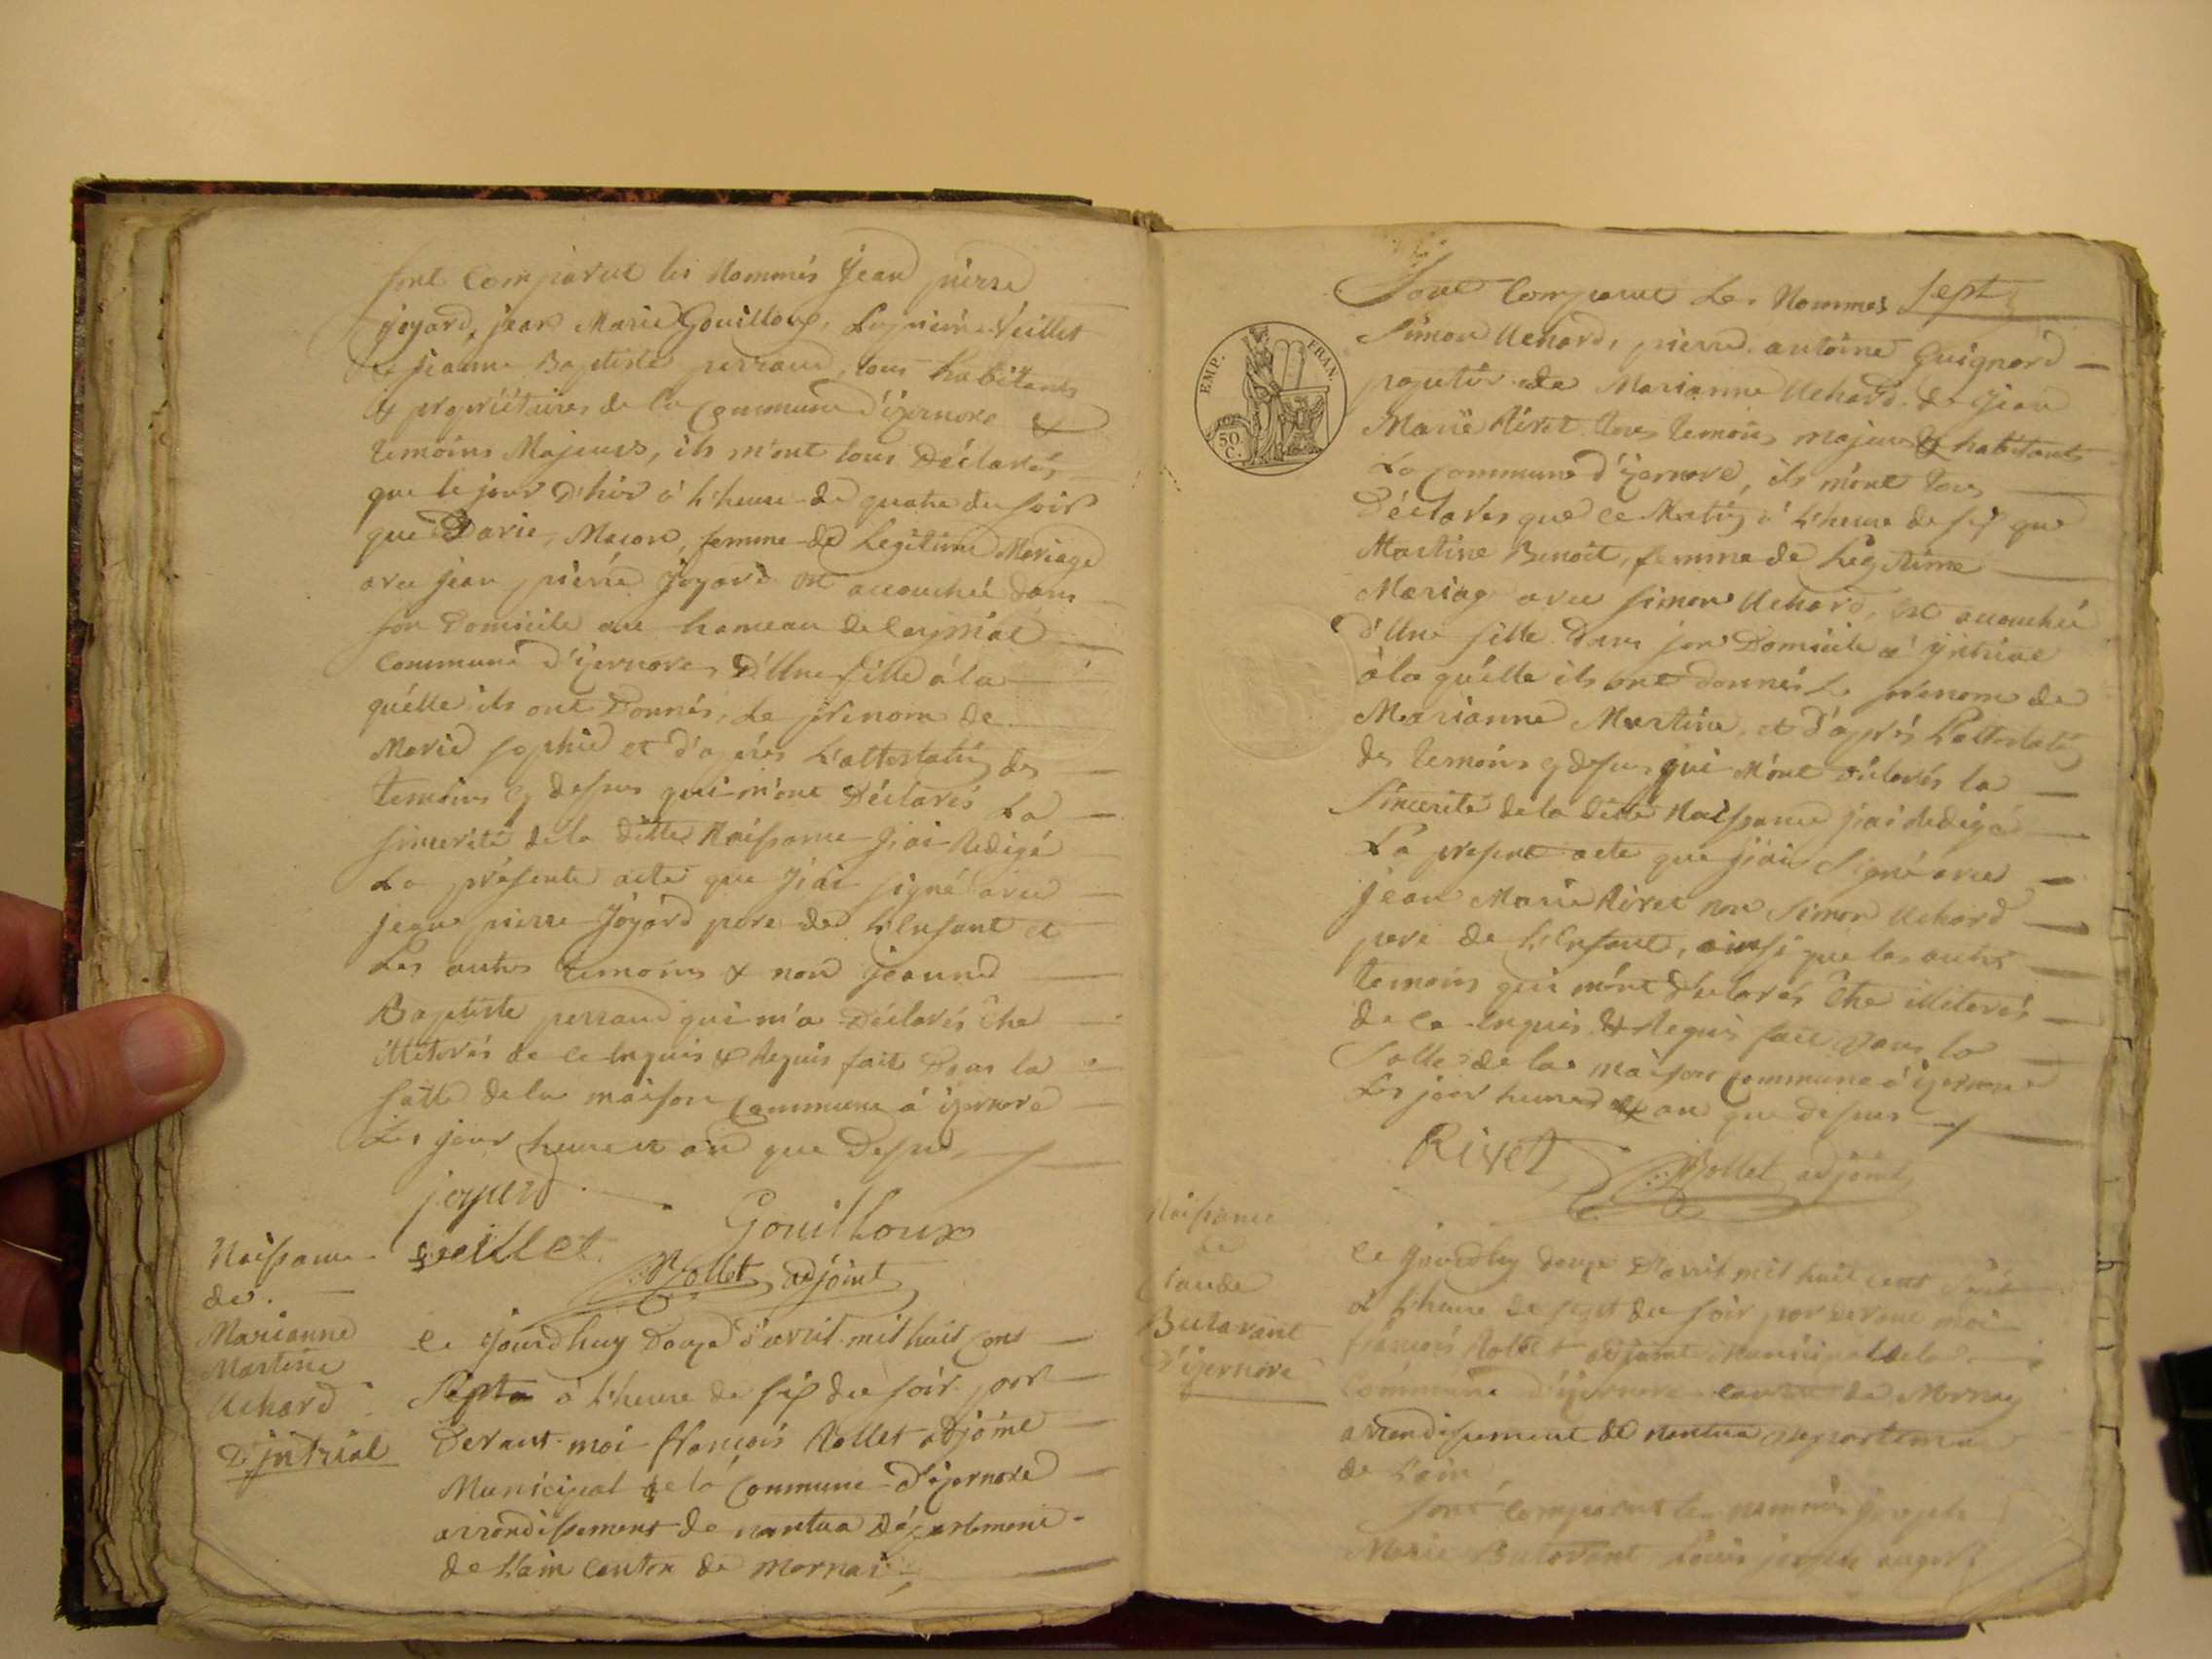 sont Comparut les Nommés Jean pierre
joyard, jean Marie Gouilloux, veillet
jeanne Baptiste perraud, tous habitants
& propriétaires de la Commune d'izernore &
temoins Majeurs, ils m'ont tous Déclarés
que le jour D'hier à L'heure de quatre du soir
que Marie, Macon, femme de Legitime Mariage
avec jean pierre joyard est accouchée dans
son Domicile au hameau de Ceyssiat
Commune d'izernore, D'Une fille à la
quélle ils ont Donnés, Le prenom de
Marie sophie et d'après L'attestation des
temoins cy dessus qui m'ont Déclarés La
sincerité de la ditte Naissance J'ai Redigé
La présente acte que J'ai signé avec
jean pierre joyard pere de L'Enfant et
Les autres temoins & non jeanne
Baptiste perraud qui m'a Déclarés être
illiterés de ce Enquis & Requis fait Dans la
salle de la maison Commune à izernore
Les jour heure et an que Dessus
joyard
veillet Gouilloux
Rollet adjoint
Naissance
de
Marianne
Martine
Uchard
D'intrial
Ce jourdhuy Douze d'avril mil huit Cent
Septe à L'heure de six du soir par
Devant moi francois Rollet adjoint
Municipal de la Commune d'izernore
arrondissement de nantua Département
de L'ain Canton de Mornai
Sont Comparut Les Nommés Sept
EMP. FRAN.
50 C.
Simon Uchard, pierre antoine Guignard
de Marianne Uchard. de Jean
Marie Rivet tous temoins majeurs & habitants
La Commune d'izernore, ils m'ont tous
Déclarés que ce Matin à L'heure de six que
Martine Benoit, femme de Legitime
Mariage avec Simon Uchard, est accouchée
d'Une fille Dans son Domicile à intrial
à la quélle ils ont donnés Le prenom de
Marianne Martine, et D'après L'attestation
des temoins cy dessus qui m'ont déclarés la
Sincerité de la ditte Naissance j'ai Redigé
La presente acte que j'ai Signé avec
jean Marie Rivet non Simon Uchard
pere de L'Enfant, ainsi que les autres
temoins qui m'ont déclarés être illiterés
de ce Enquis & Requis fait Dans la
Salle de la maison Commune à izernore
Les jour heure & an que dessus
Rivet Rollet adjoint
Naissance
de
Claude
Butavant
D'izernore
Ce jourdhuy douze d'avril mil huit cent Sept
à L'heure de sept du soir par devant moi
francois Rollet adjoint Municipal de la
Commune D'izernore canton de Mornay
arrondissement de nantua departement
de L'ain
sont Comparut les nommés joseph
Marie Butavant Louis joseph